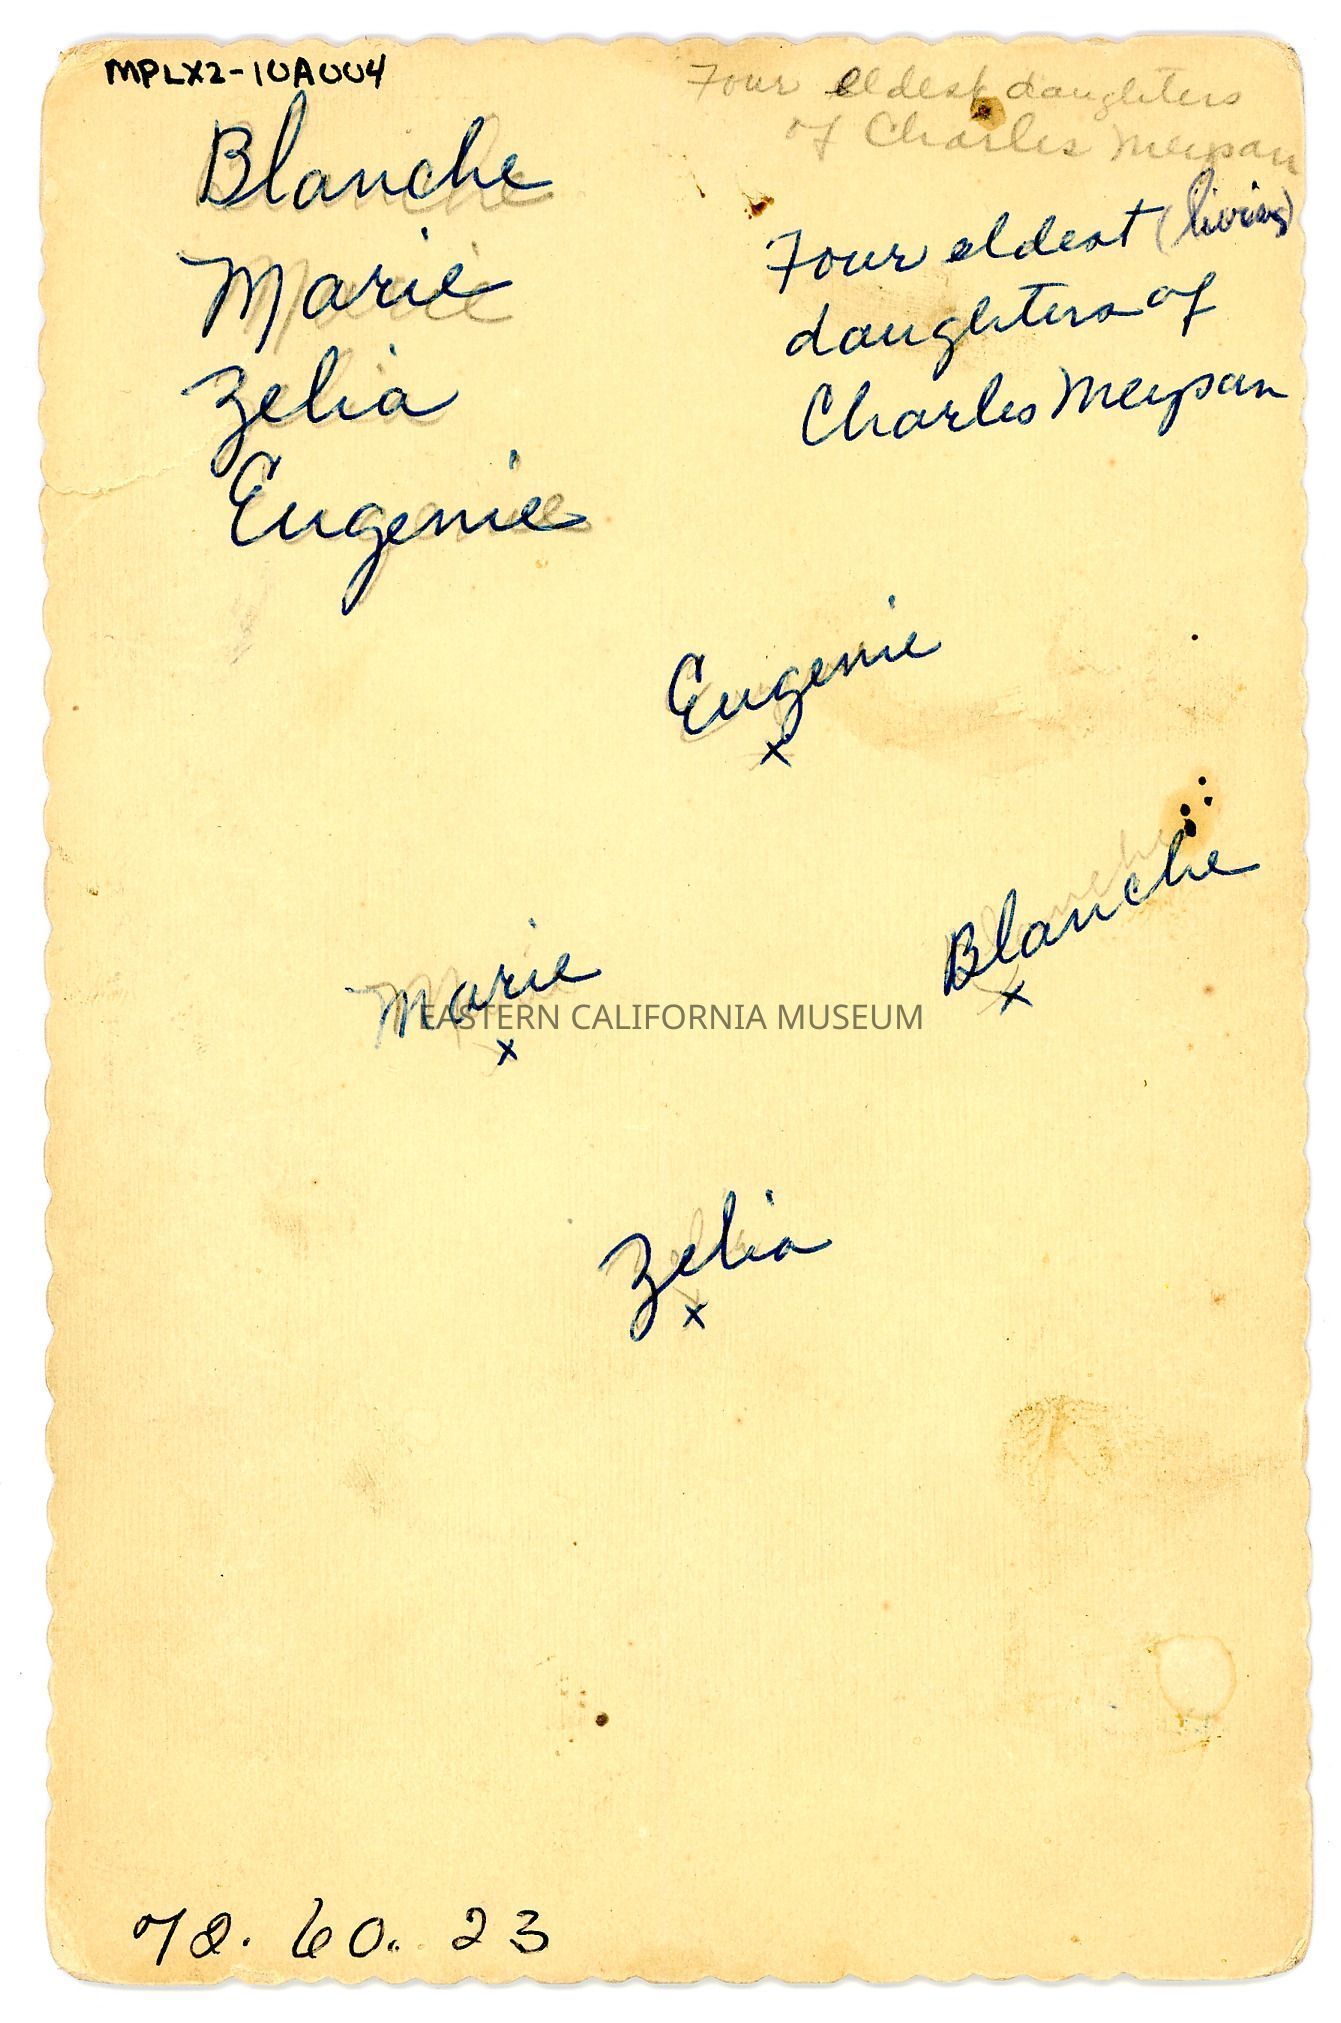 MPLX2-10A004
Four eldest daughters
of Charles Meysan
Blanche
Marie
Zelia
Eugenie
Four eldest (living)
daughters of
Charles Meysan
Eugenie
x
Blanche
x
Marie
x
EASTERN CALIFORNIA MUSEUM
Zelia
x
72. 60. 23